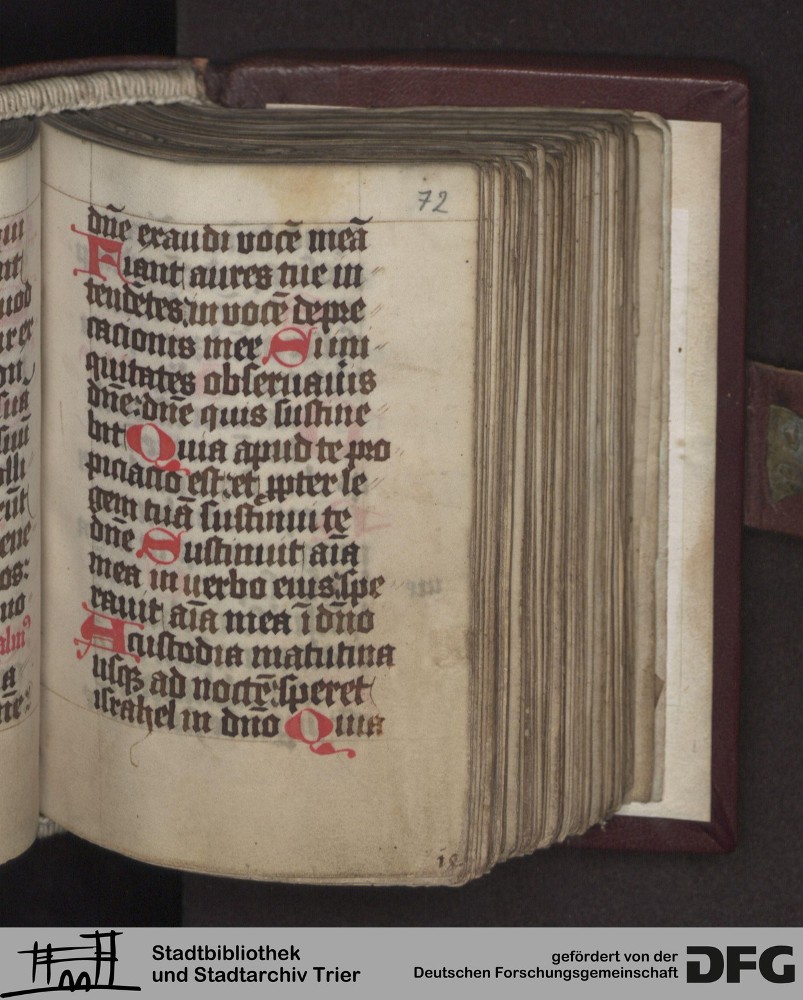 72
dn̄e exaudi vocē meā
Fiant aures tue in
tendētes, in vocē depre
cacionis mee Si ini
quitates obseruaūis
dn̄e: dn̄e quis sustine
bit Quia apud te pro
piciacio est: et ꝓpter le
gem tuā sustinui te
dn̄e Sustinuit aīa
mea in uerbo eius: spe
rauit aīa mea ī dn̄o
A custodia matutina
usqꝫ ad noctē: speret
israhel in dn̄o Quia
Stadtbibliothek
und Stadtarchiv Trier
gefördert von der
Deutschen Forschungsgemeinschaft
DFG